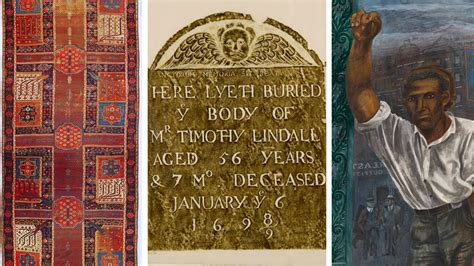 HERE LYETH BURIED
Y BODY OF
Mr TIMOTHY LINDALL
AGED 56 YEARS
& 7 Mo DECEASED
JANUARY Ye 6
169 8/9